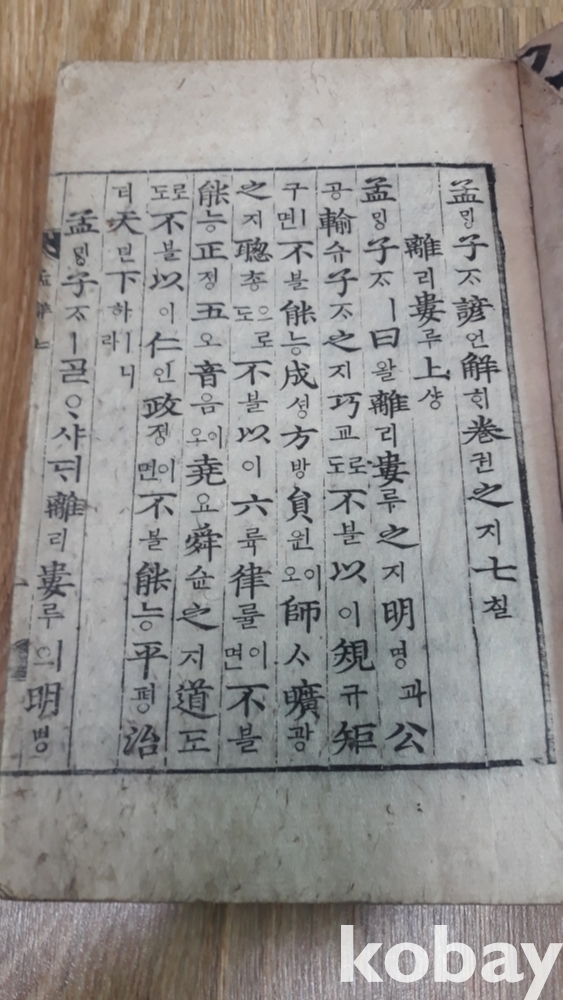 孟ᄆᆡᆼ子ᄌᆞ諺언解ᄒᆡ卷권之지七칠
離리婁루上샹
孟ᄆᆡᆼ子ᄌᆞㅣ曰왈離리婁루之지明명과公
공輸슈子ᄌᆞ之지巧교로도不불以이規규矩
구ㅣ면不불能능成셩方방員원이오師ᄉᆞ曠광
之지聰총으로도不불以이六륙律률이면不불
能능正졍五오音음이오堯요舜슌之지道도
로도不불以이仁인政졍이면不불能능平평治
티天텬下하ㅣ니라
孟ᄆᆡᆼ子ᄌᆞㅣ곧ᄋᆞ샤ᄃᆡ離리婁루의明명
kobay